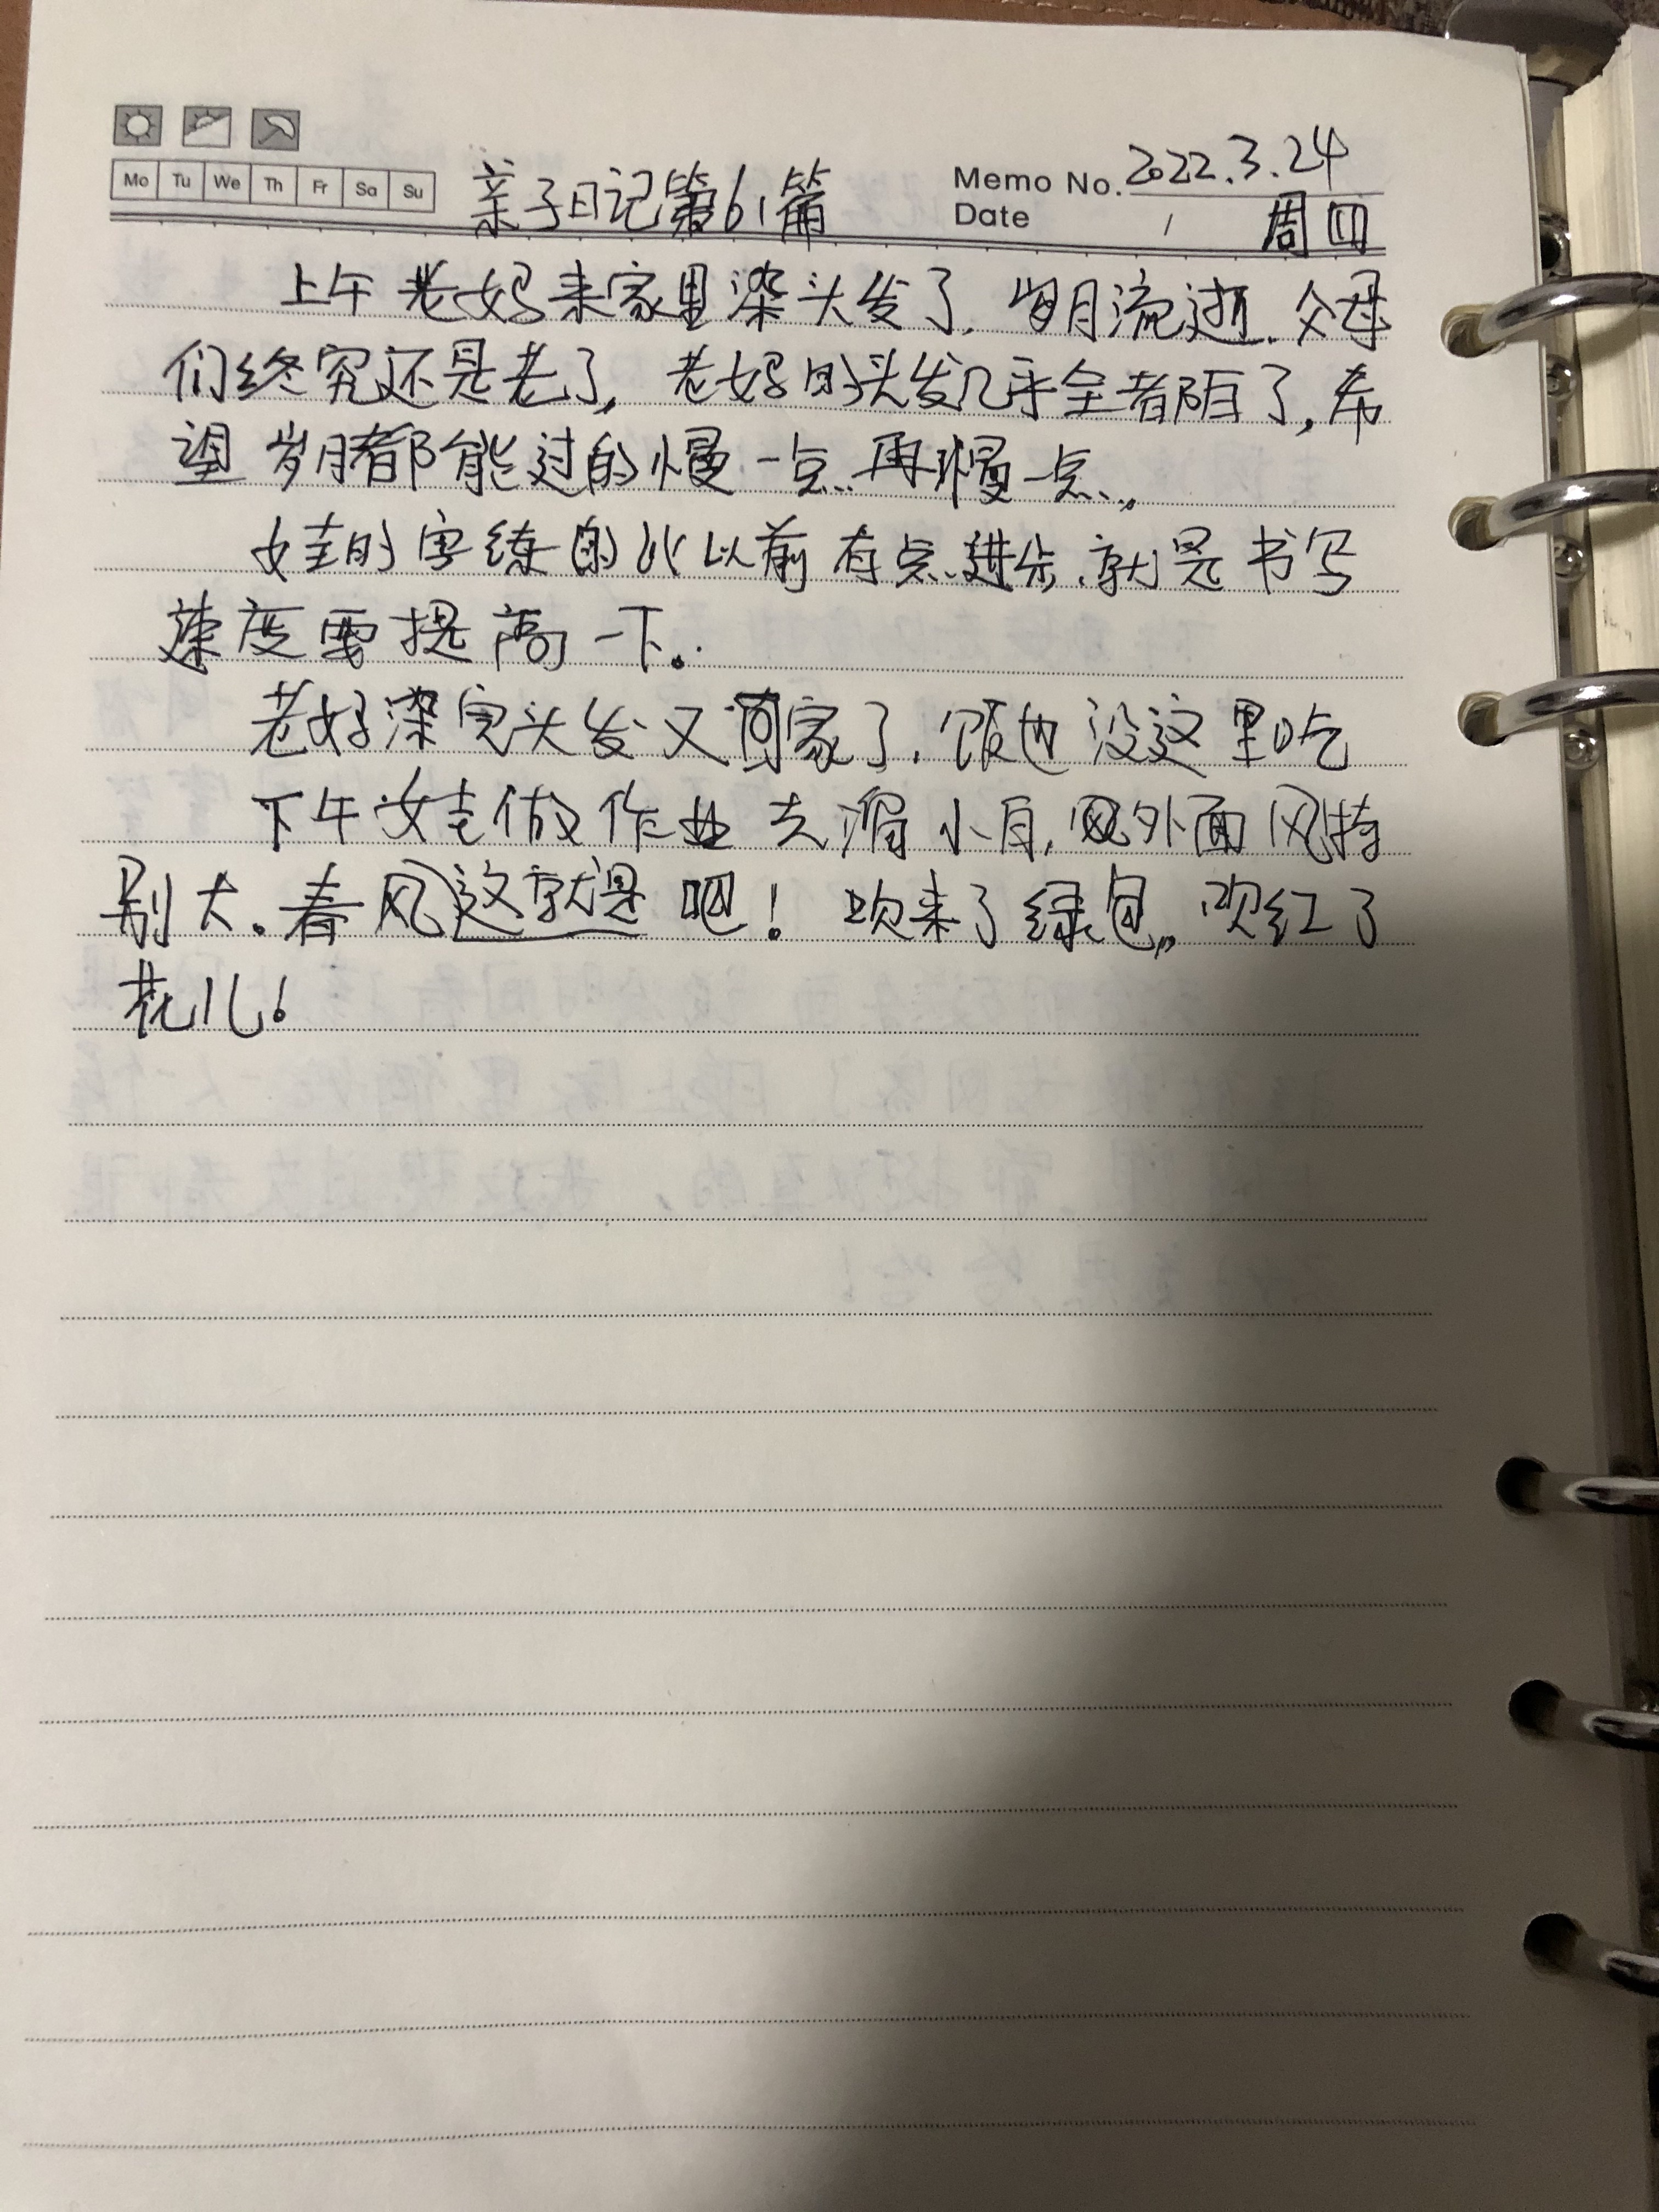 Mo Tu We Th Fr Sa Su
亲子日记第61篇
Memo No. 2022.3.24
Date / 周四
上午老妈来家里染头发了.岁月流逝.父母
们终究还是老了,老妈的头发几乎全都白了,希
望岁月都能过的慢一点再慢一点。
女圭的字练的比以前有点进步.就是书写
速度要提高一下。
老妈染完头发又回家了.饭也没这里吃
下午女圭做作业去滑小月,外面风特
别大.春风这就是吧!吹来了绿色,吹红了
花儿!